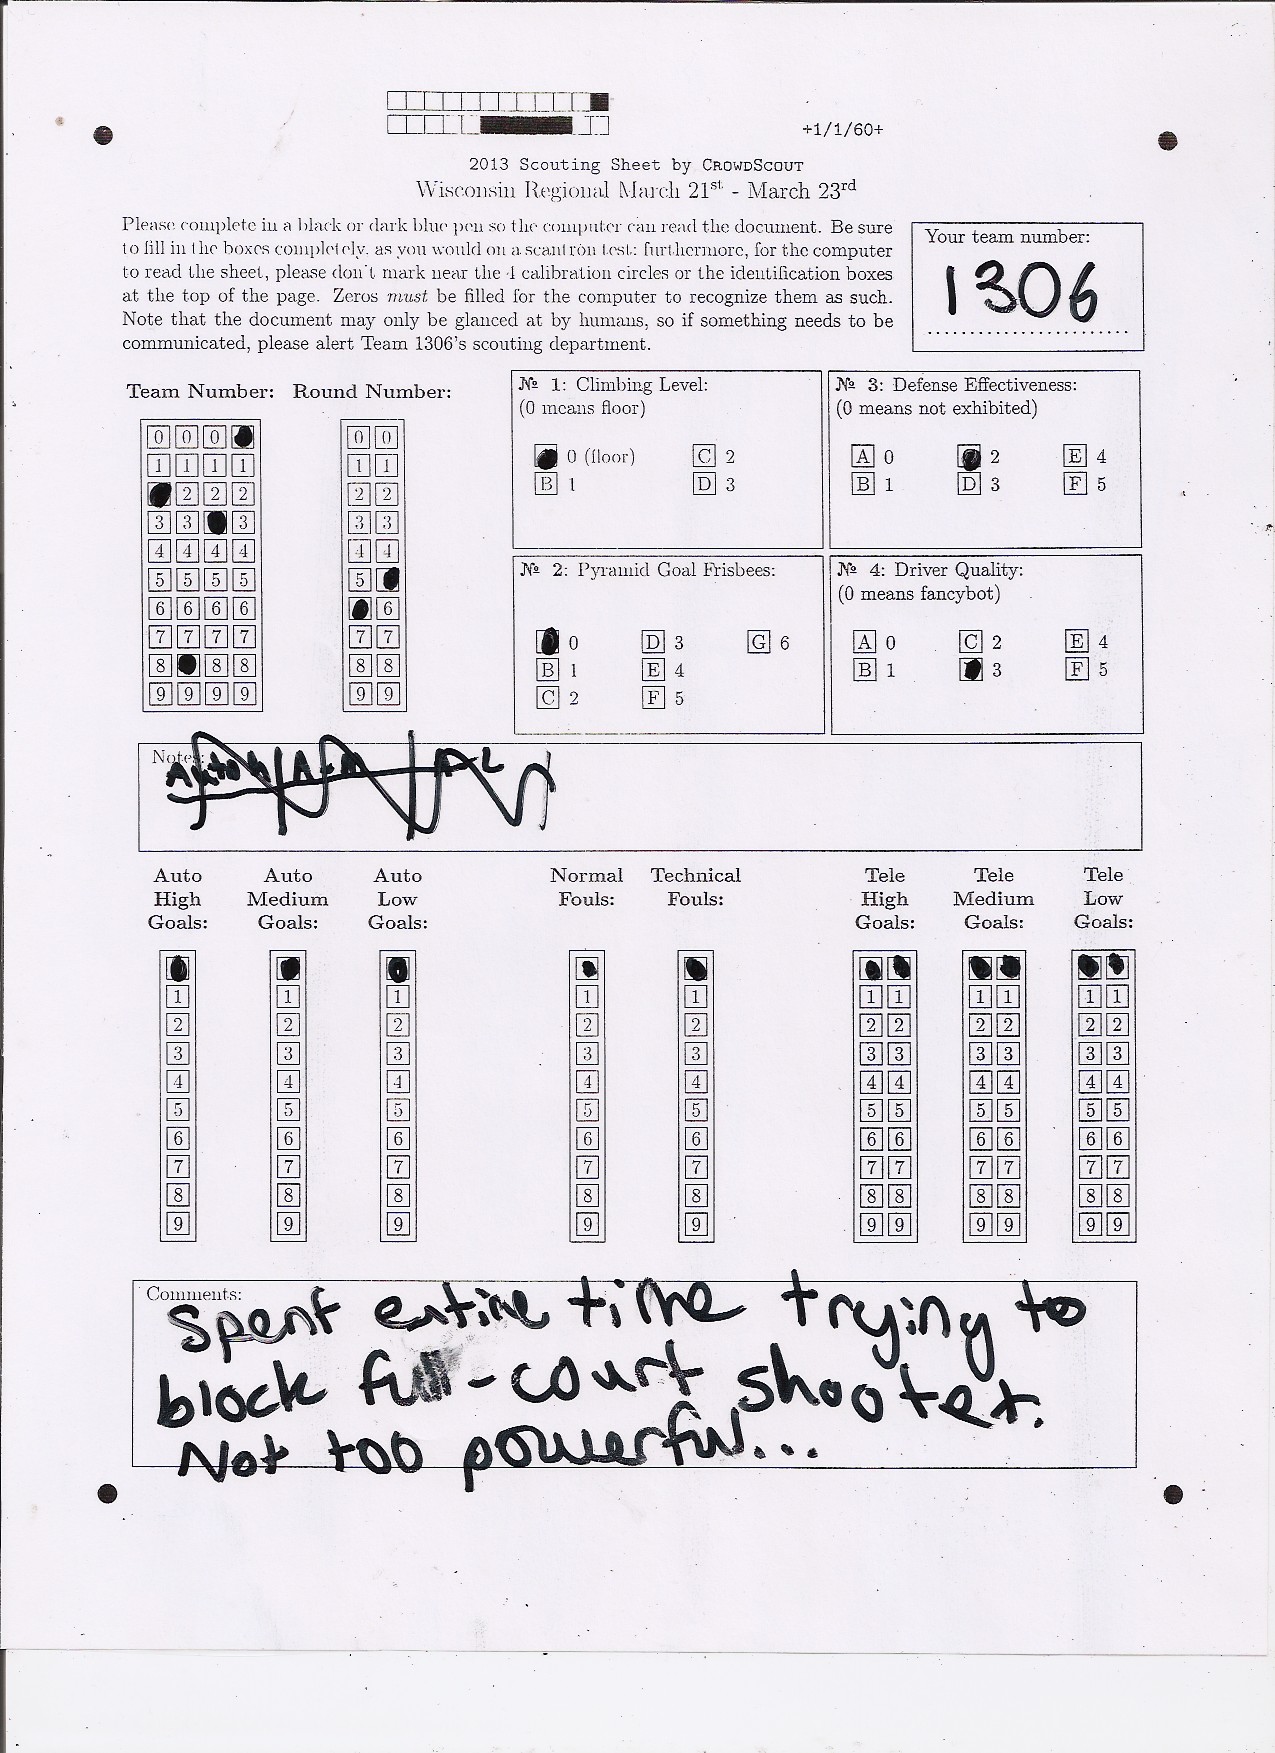 +1/1/60+
2013 Scouting Sheet by CROWDSCOUT
Wisconsin Regional March 21st - March 23rd
Please complete in a black or dark blue pen so the computer can read the document. Be sure
to fill in the boxes completely, as you would on a scantron test; furthermore, for the computer
to read the sheet, please don't mark near the 4 calibration circles or the identification boxes
at the top of the page. Zeros must be filled for the computer to recognize them as such.
Note that the document may only be glanced at by humans, so if something needs to be
communicated, please alert Team 1306's scouting department.
Your team number:
1306
Team Number: Round Number:
0 0 0 0 0
1 1 1 1 1 1
2 2 2 2 2
3 3 3 3 3
4 4 4 4 4 4
5 5 5 5 5
6 6 6 6 6
7 7 7 7 7 7
8 8 8 8 8
9 9 9 9 9 9
№ 1: Climbing Level:
(0 means floor)
0 (floor) C 2
B 1 D 3
№ 3: Defense Effectiveness:
(0 means not exhibited)
A 0 2 E 4
B 1 D 3 F 5
№ 2: Pyramid Goal Frisbees:
0 D 3 G 6
B 1 E 4
C 2 F 5
№ 4: Driver Quality:
(0 means fancybot)
A 0 C 2 E 4
B 1 3 F 5
Notes:
Auto
High
Goals:
Auto
Medium
Goals:
Auto
Low
Goals:
Normal
Fouls:
Technical
Fouls:
Tele
High
Goals:
Tele
Medium
Goals:
Tele
Low
Goals:
1 1 1 1 1 1 1 1 1 1 1
2 2 2 2 2 2 2 2 2 2 2
3 3 3 3 3 3 3 3 3 3 3
4 4 4 4 4 4 4 4 4 4 4
5 5 5 5 5 5 5 5 5 5 5
6 6 6 6 6 6 6 6 6 6 6
7 7 7 7 7 7 7 7 7 7 7
8 8 8 8 8 8 8 8 8 8 8
9 9 9 9 9 9 9 9 9 9 9
Comments:
Spent entire time trying to
block full-court shooter.
Not too powerful...